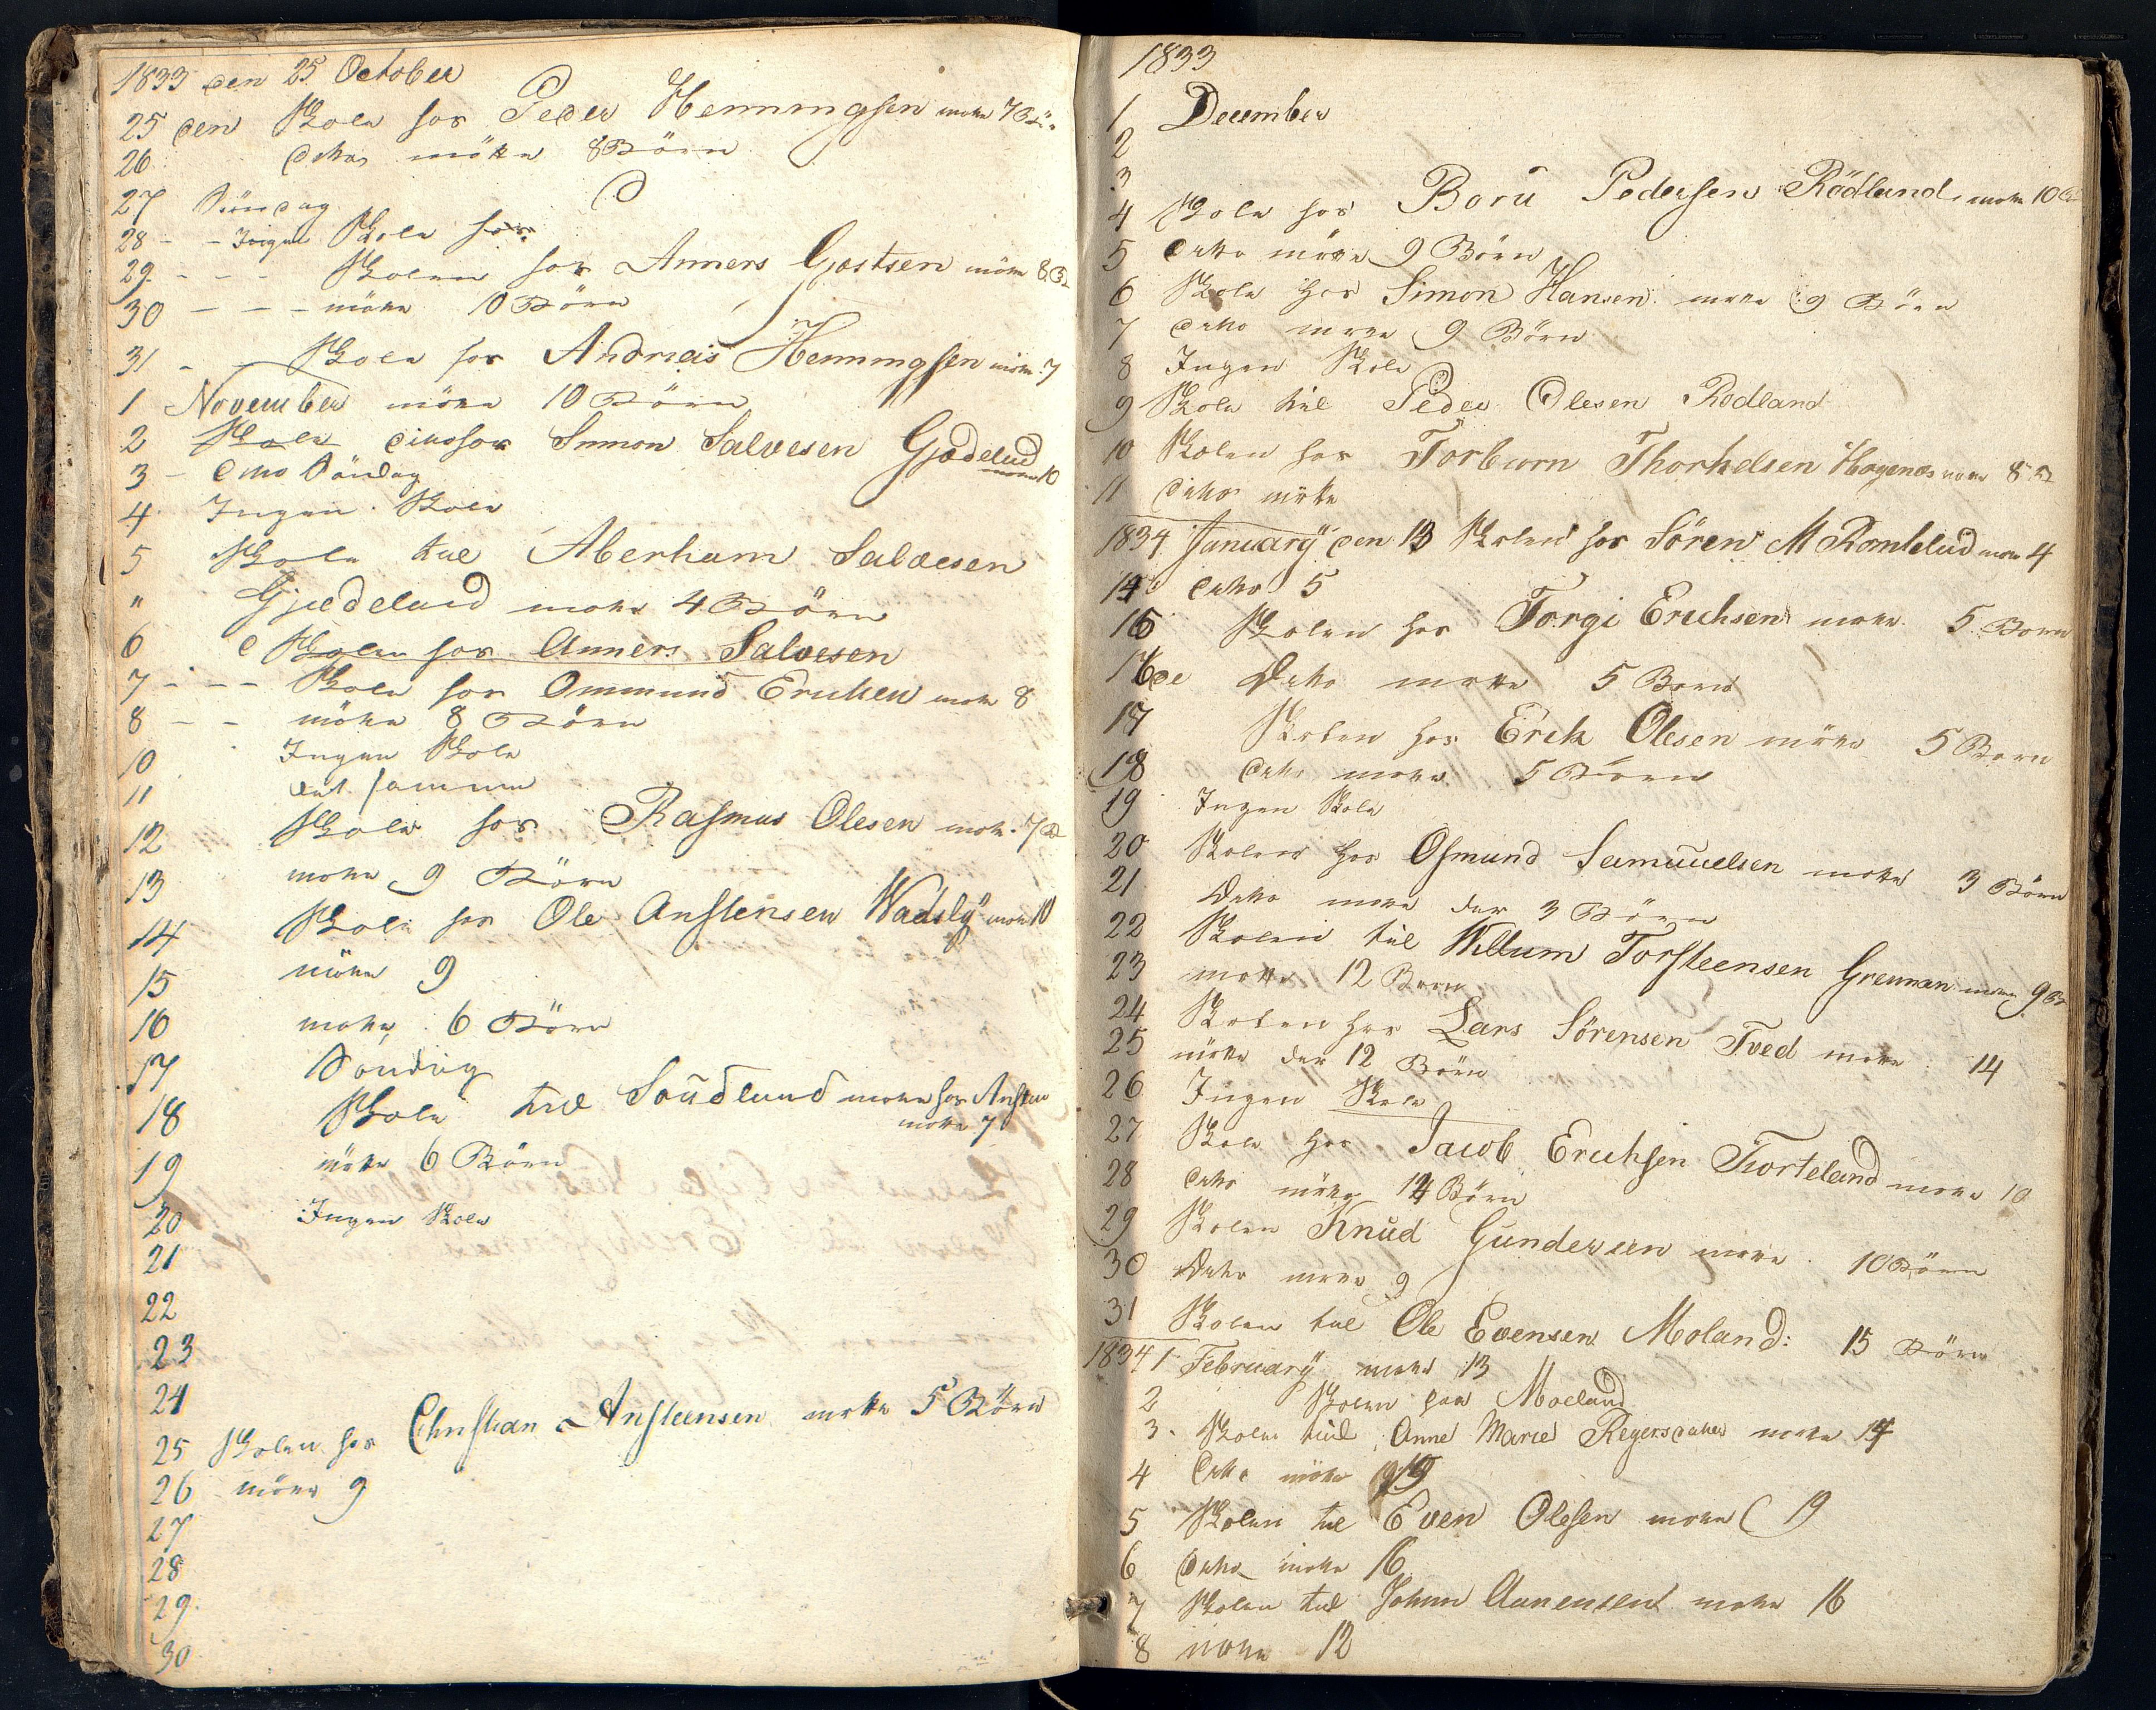 1833 den 25 October
25 den Skole hos Peder Henningsen møtte 7 Bø
26 ditto mötte 8 Börn
27 Söndag
28 - - Ingen Skole hos
29 - - - Skolen hos Anners Gastsen mötte 8 B
30 - - - mötte 10 Börn
31 - - Skole hos Andreas Henningsen mötte 7
1 November mötte 10 Börn
2 Skole ditto hos Simon Salvesen Gjædelud
motte 10
3 - ditto Söndag
4 Ingen Skole
5 Skole till Aberham Salvesen
" Gjædelaid motte 4 Börn
6 Skolen hos Anners Salvesen
7 - - - Skole hos Ommund Erichen motte 8
8 - - mötte 8 Börn
10 Ingen Skole
11 det samme
12 Skole hos Rasmus Olesen motte 7 B
13 motte 9 Börn
14 Skole hos Ole Anstensen Wadsly motte 10
15 mötte 9
16 motte 6 Börn
17 Sondag
18 Skole till Soudland motte hos Ansten
motte 7
19 mötte 6 Börn
20 Ingen Skole
21
22
23
24
25 Skolen hos Christian Ansteensen motte 5 Börn
26 mötte 9
27
28
29
30
1833
1 December
2
3
4 Skole hos Boru Pedersen Rödland motte 10
5 ditto mötte 9 Börn
6 Skole hos Simon Hansen motte 9 Börn
7 ditto motte 9 Börn
8 Ingen Skole
9 Skole till Peder Olesen Rodland
10 Skolen hos Torbiorn Thorkelsen motte 8 B
11 ditto mötte
1834 January den 13 Skolen hos Sören M Romtelud motte 4
14 ditto 5
15 Skolen hos Torgi Erichsen motte 5 Born
16de Ditto motte 5 Born
17 Skolen hos Erch Olesen mötte 5 Born
18 ditto motte 5 Born
19 Ingen Skole
20 Skolen hos Osmund Samuuelsen motte 3 Börn
21 Ditto motte der 3 Börn
22 Skolen till Willum Torsteensen Grennan motte 9 B
23 motte 12 Born
24 Skolen hos Lars Sörensen Tved motte 14
25 mötte der 12 Börn
26 Ingen Skole
27 Skole hos Jacob Erichsen Tiorteland motte 10
28 ditto mötte 14 Börn
29 Skolen Knud Gundersen motte 10 Börn
30 Ditto motte 9
31 Skolen till Ole Evensen Moland: 15 Börn
1834 1 February motte 13
2 Skolen paa Moeland
3 Skolen till Anne Marie Regersdatter motte 14
4 Ditto mötte 19
5 Skolen till Even Olesen motte 19
6 Ditto motte 16
7 Skolen till Johnn Aanensen motte 16
8 motte 12